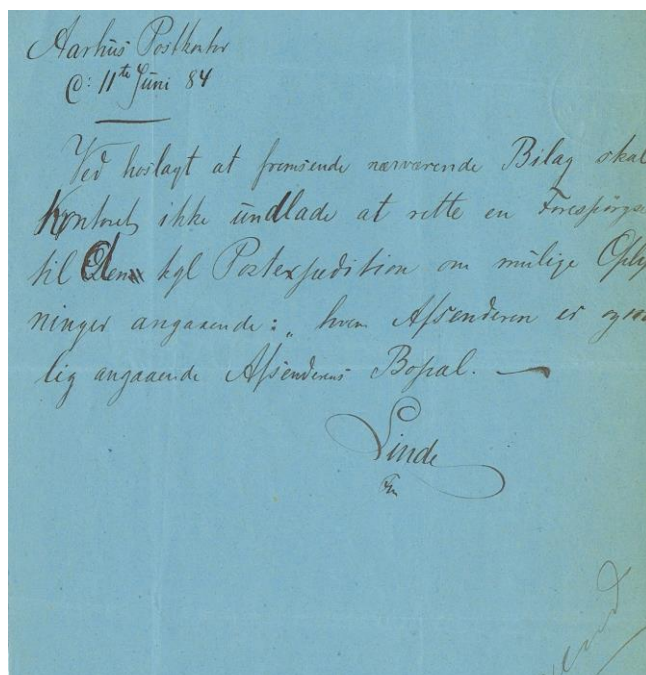 Aarhus Postkontor
d: 11te Juni 84
Ved hoslagt at fremsende nærværende Bilag skal
Kontoret ikke undlade at rette en Forespørgs
til Den kgl Postexpedition om mulige Oply
ninger angaaende: „ hvem Afsenderen er
lig angaaende Afsenderens Bopæl. —
Linde